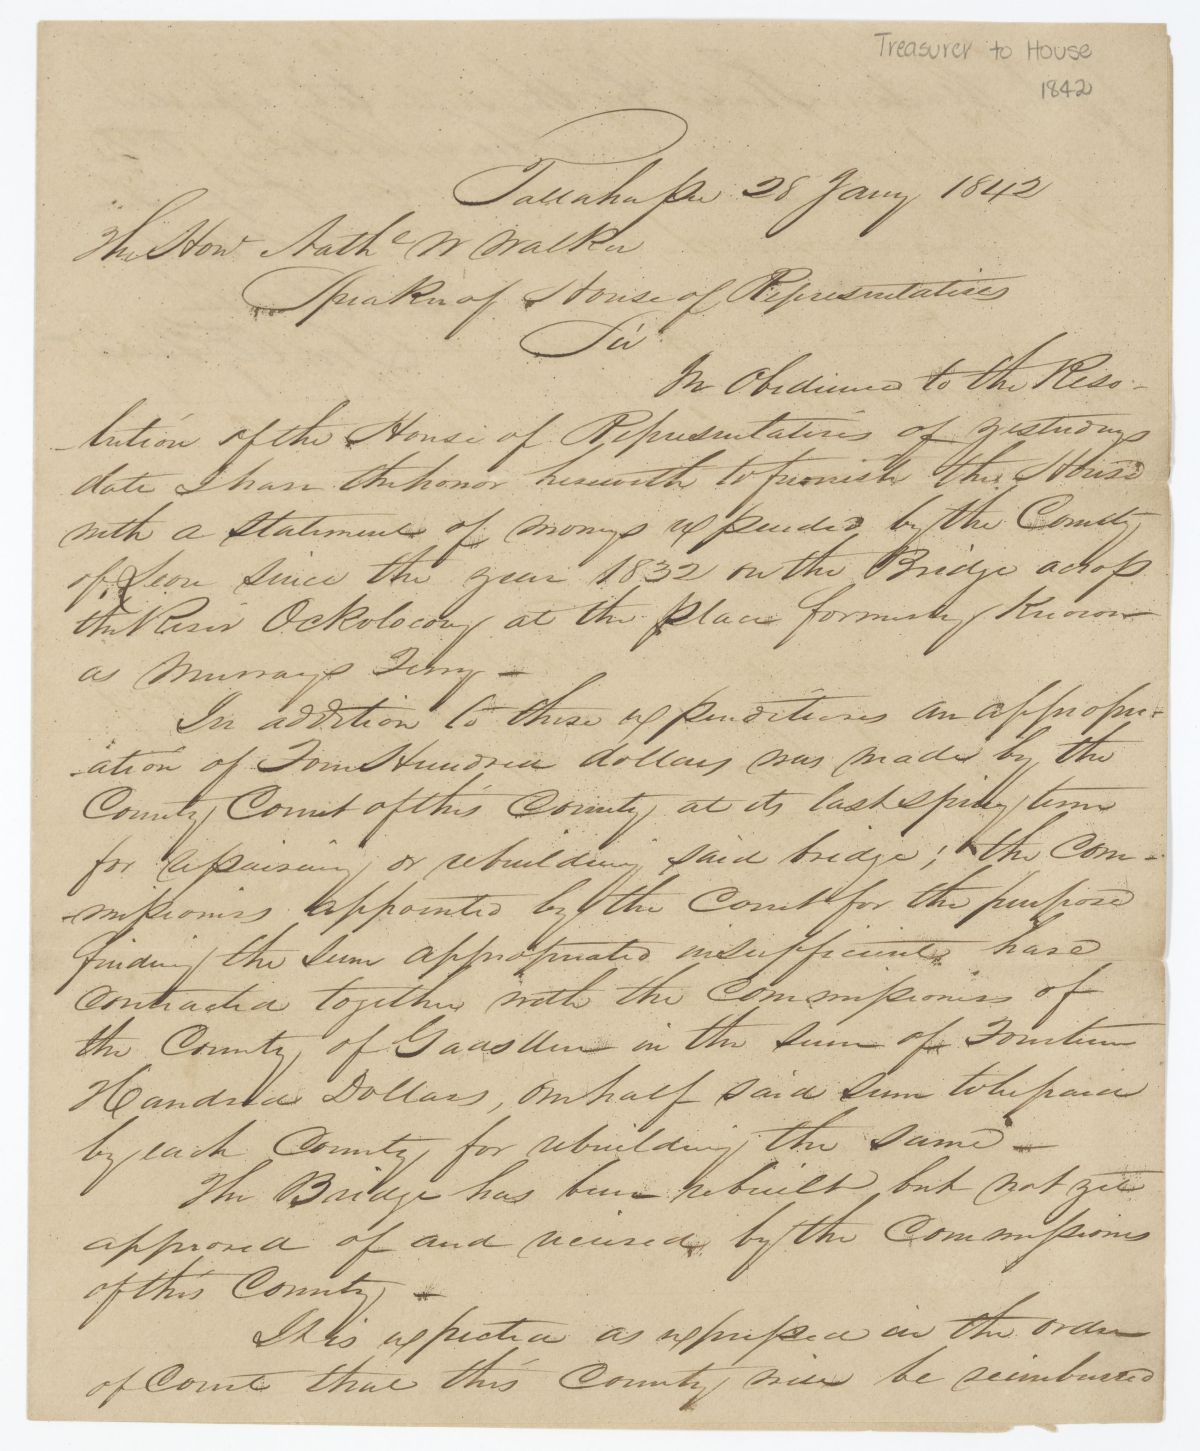 Treasurer to House
1842
Tallahassee 28 Jany 1842
The Hone Nathl W Walker
Speaker of House of Representatives
Sir
In Obedience to the Reso-
-lution of the House of Representatives of yesterdays
date I have the honor herewith to furnish the House
with a statement of monys expended by the County
of Leon since the year 1832 on the Bridge across
the River Ockolocony at the place formerly Known
as Murrays Ferry -
In addition to these expenditures an appropri-
-ation of Four Hundred dollars was made by the
County Court of this County at its last spring term
for repairing or rebuilding said bridge; the Com-
-missioners appointed by the Court for the purpose
finding the sum appropriated insufficient have
Contracted together with the Commissioners of
the County of Gadsden in the sum of Fourteen
Hundred Dollars, one half said sum to be paid
by each County for rebuilding the same -
The Bridge has been rebuilt but not yet
approved of and received by the Commissioners
of this County -
It is expected as expressed in the order
of Court that this County will be reimbursed